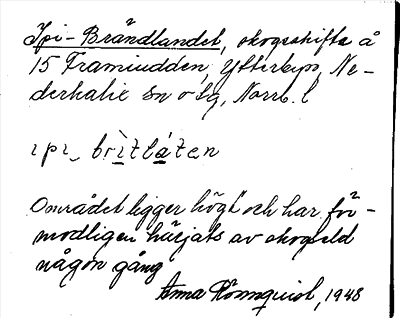 Ipi-Brändlandet, skogsskifte å
15 Framiudden, Ytterbyn, Ne-
derkalix sn o tg, Norrb. l
ıpı_ brìtláten
Området ligger högt och har för-
modligen härjats av skogseld
någon gång
Anna Rönnqvist, 1948